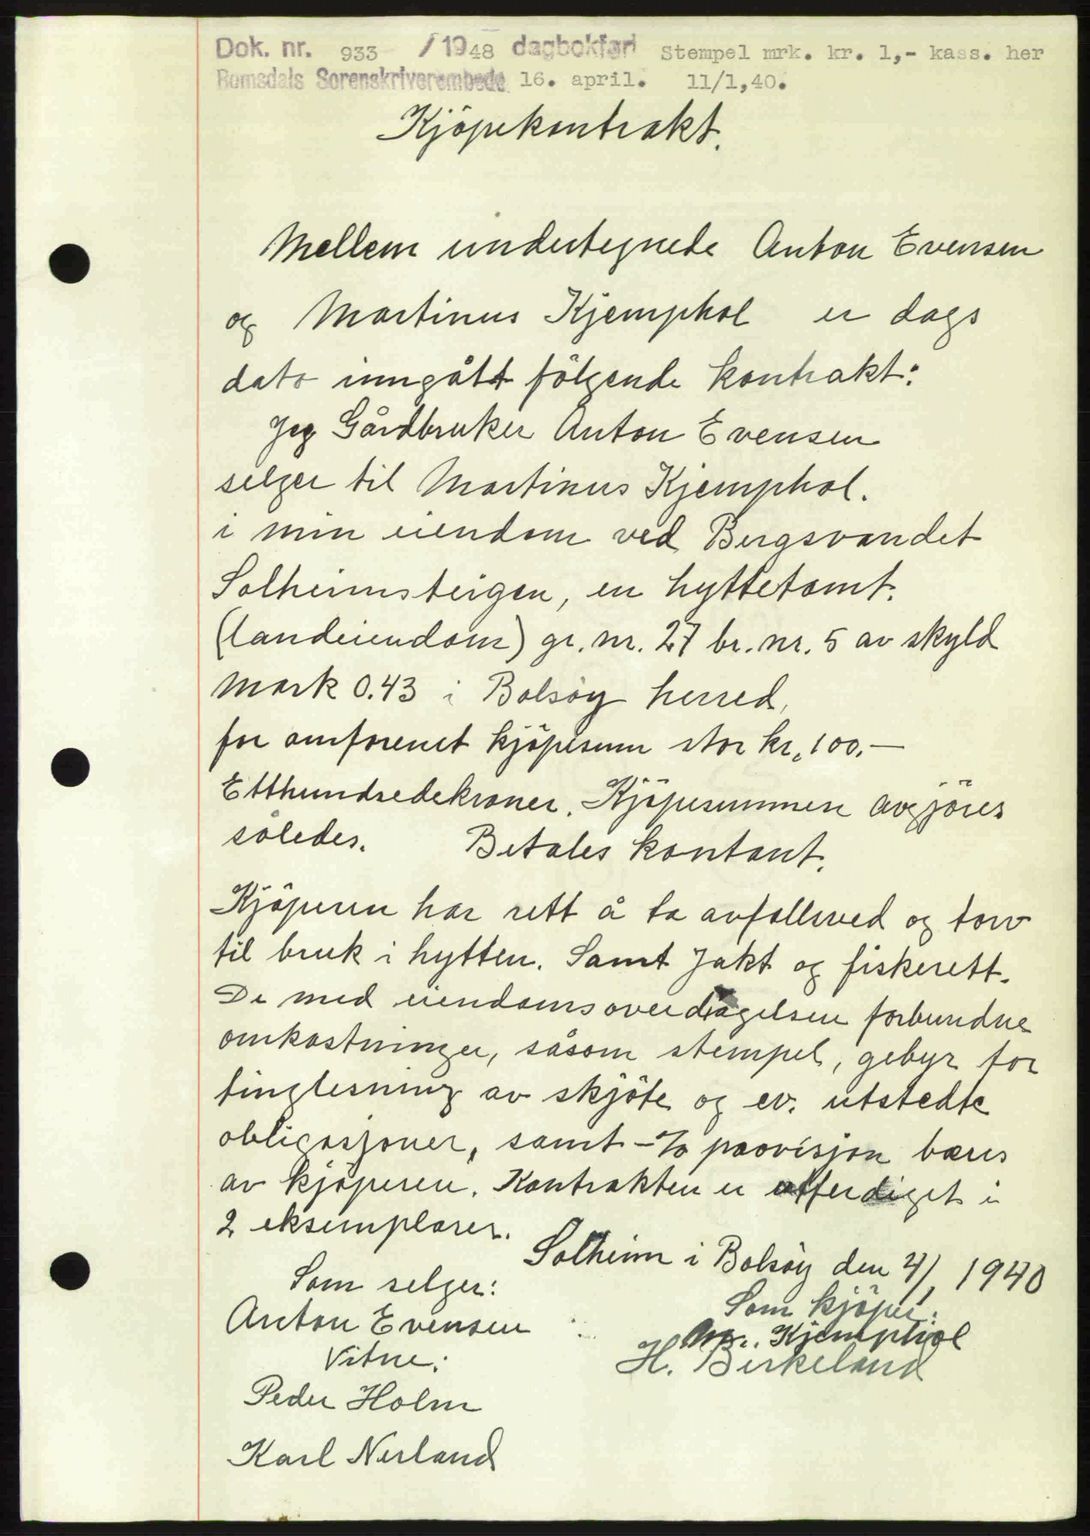 Dok. nr. 933 / 1948 dagbokført Stempel mrk. kr. 1,- kass. her
Romsdals Sorenskriverembede 16. april. 11/1,40.
Kjöpekontrakt.
Mellem undertegnede Anton Evensen
og Martinus Kjemphol er dags
dato inngått fölgende kontrakt:
Jeg Gårdbruker Anton Evensen
selger til Martinus Kjemphol.
i min eiendom ved Bergsvandet
Solheimsteigen, en hyttetomt.
(landeiendom) gr. nr. 27 br. nr. 5 av skyld
Mark 0.43 i Bolsöy herred,
for omforenet kjöpesum stor kr. 100.-
Etthundredekroner. Kjöpesummen avgjöres
således. Betales kontant.
Kjöperen har rett å ta avfallsved og torv
til bruk i hytten. Samt Jakt og fiskerett.
De med eiendomsoverdragelsen forbundne
omkostninger, såsom stempel, gebyr for
tinglesning av skjöte og ev. utstedte
obligasjoner, samt -% provisjon bæres
av kjöperen. Kontrakten er utferdiget i
2 eksemplarer.
Solheim i Bolsöy den 4/1 1940
Som selger:
Som kjöper:
Anton Evensen
M. Kjemphol
H. Birkeland
Vitne:
Peder Holm
Karl Nerland